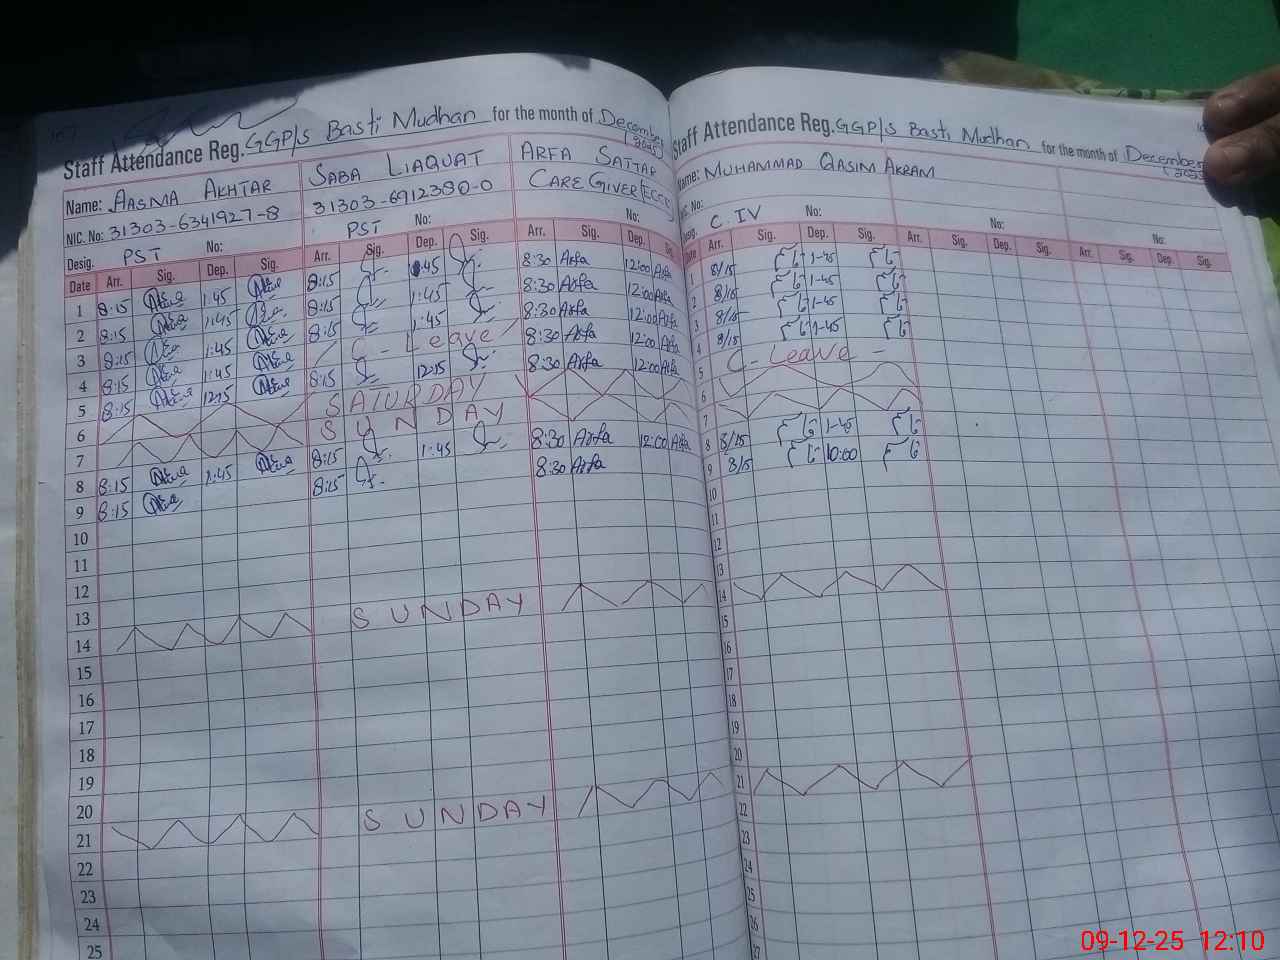 Staff Attendance Reg. GGP/s Basti Mudhan for the month of December (2025)
Name: AASMA AKHTAR SABA LIAQUAT ARFA SATTAR
NIC. No: 31303-6341927-8 31303-6912380-0 CARE GIVER (ECCE)
Desig. PST No: PST No: No:
Date Arr. Sig. Dep. Sig. Arr. Sig. Dep. Sig. Arr. Sig. Dep. Sig.
1 8:15 1:45 8:15 1:45 8:30 Arfa 12:00 Arfa
2 8:15 1:45 8:15 1:45 8:30 Arfa 12:00 Arfa
3 8:15 1:45 8:15 1:45 8:30 Arfa 12:00 Arfa
4 8:15 1:45 C - Leave 8:30 Arfa 12:00 Arfa
5 8:15 12:15 8:15 12:15 8:30 Arfa 12:00 Arfa
6 SATURDAY
7 SUNDAY
8 8:15 1:45 8:15 1:45 8:30 Arfa 12:00 Arfa
9 8:15 8:15 8:30 Arfa
10
11
12
13
14 SUNDAY
15
16
17
18
19
20
21 SUNDAY
22
23
24
25
Staff Attendance Reg. GGP/s Basti Mudhan for the month of December (2025)
Name: MUHAMMAD QASIM AKRAM
NIC. No:
Desig. C. IV No: No: No:
Date Arr. Sig. Dep. Sig. Arr. Sig. Dep. Sig. Arr. Sig. Dep. Sig.
1 8/15 1-45
2 8/15 1-45
3 8/15 1-45
4 8/15 1-45
5 C - Leave -
6
7
8 8/15 1-45
9 8/15 10:00
10
11
12
13
14
15
16
17
18
19
20
21
22
23
24
25
26
27
09-12-25 12:10